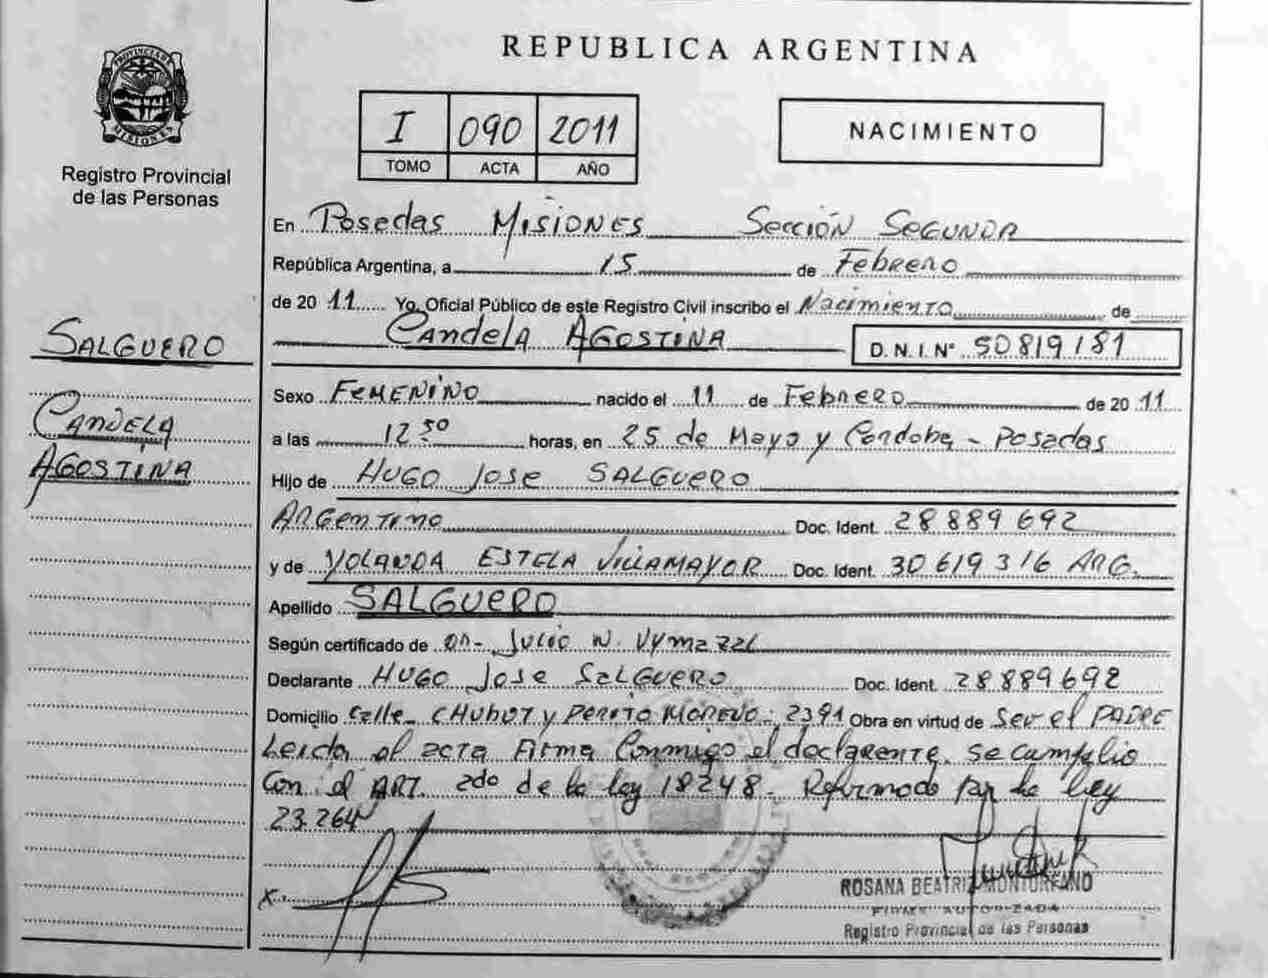 REPUBLICA ARGENTINA
PROVINCIA DE MISIONES
Registro Provincial
de las Personas
I 090 2011
TOMO ACTA AÑO
NACIMIENTO
En Posadas Misiones Sección Segunda
República Argentina, a 15 de Febrero
de 2011 Yo, Oficial Público de este Registro Civil inscribo el Nacimiento de
Candela Agostina D.N.I. N° 50819181
SALGUERO
Candela
Agostina
Sexo Femenino nacido el 11 de Febrero de 2011
a las 12 50 horas, en 25 de Mayo y Cordoba - Posadas
Hijo de Hugo Jose SALGUERO
Argentino Doc. Ident. 28889692
y de YOLANDA ESTELA VILLAMAYOR Doc. Ident. 30619316 ARG.
Apellido SALGUERO
Según certificado de Dr. Julio N. Vymazal
Declarante Hugo Jose Salguero Doc. Ident. 28889692
Domicilio Calle CHUBUT y PERITO MORENO - 2391 Obra en virtud de Ser el PADRE
Leida el acta Firma Conmigo el declarante. Se cumplio
Con el ART. 2do de la ley 18248. Reformado por la ley
23.264
X
ROSANA BEATRIZ
FIRMA AUTORIZADA
Registro Provincial de las Personas